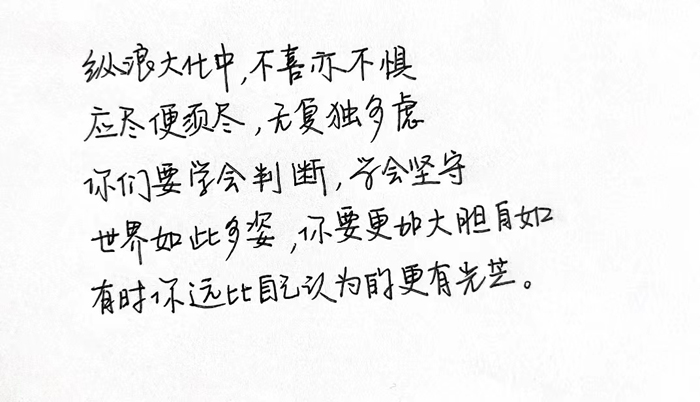 纵浪大化中,不喜亦不惧
应尽便须尽,无复独多虑
你们要学会判断,学会坚守
世界如此多姿,你要更加大胆自如
有时你远比自己认为的更有光芒。